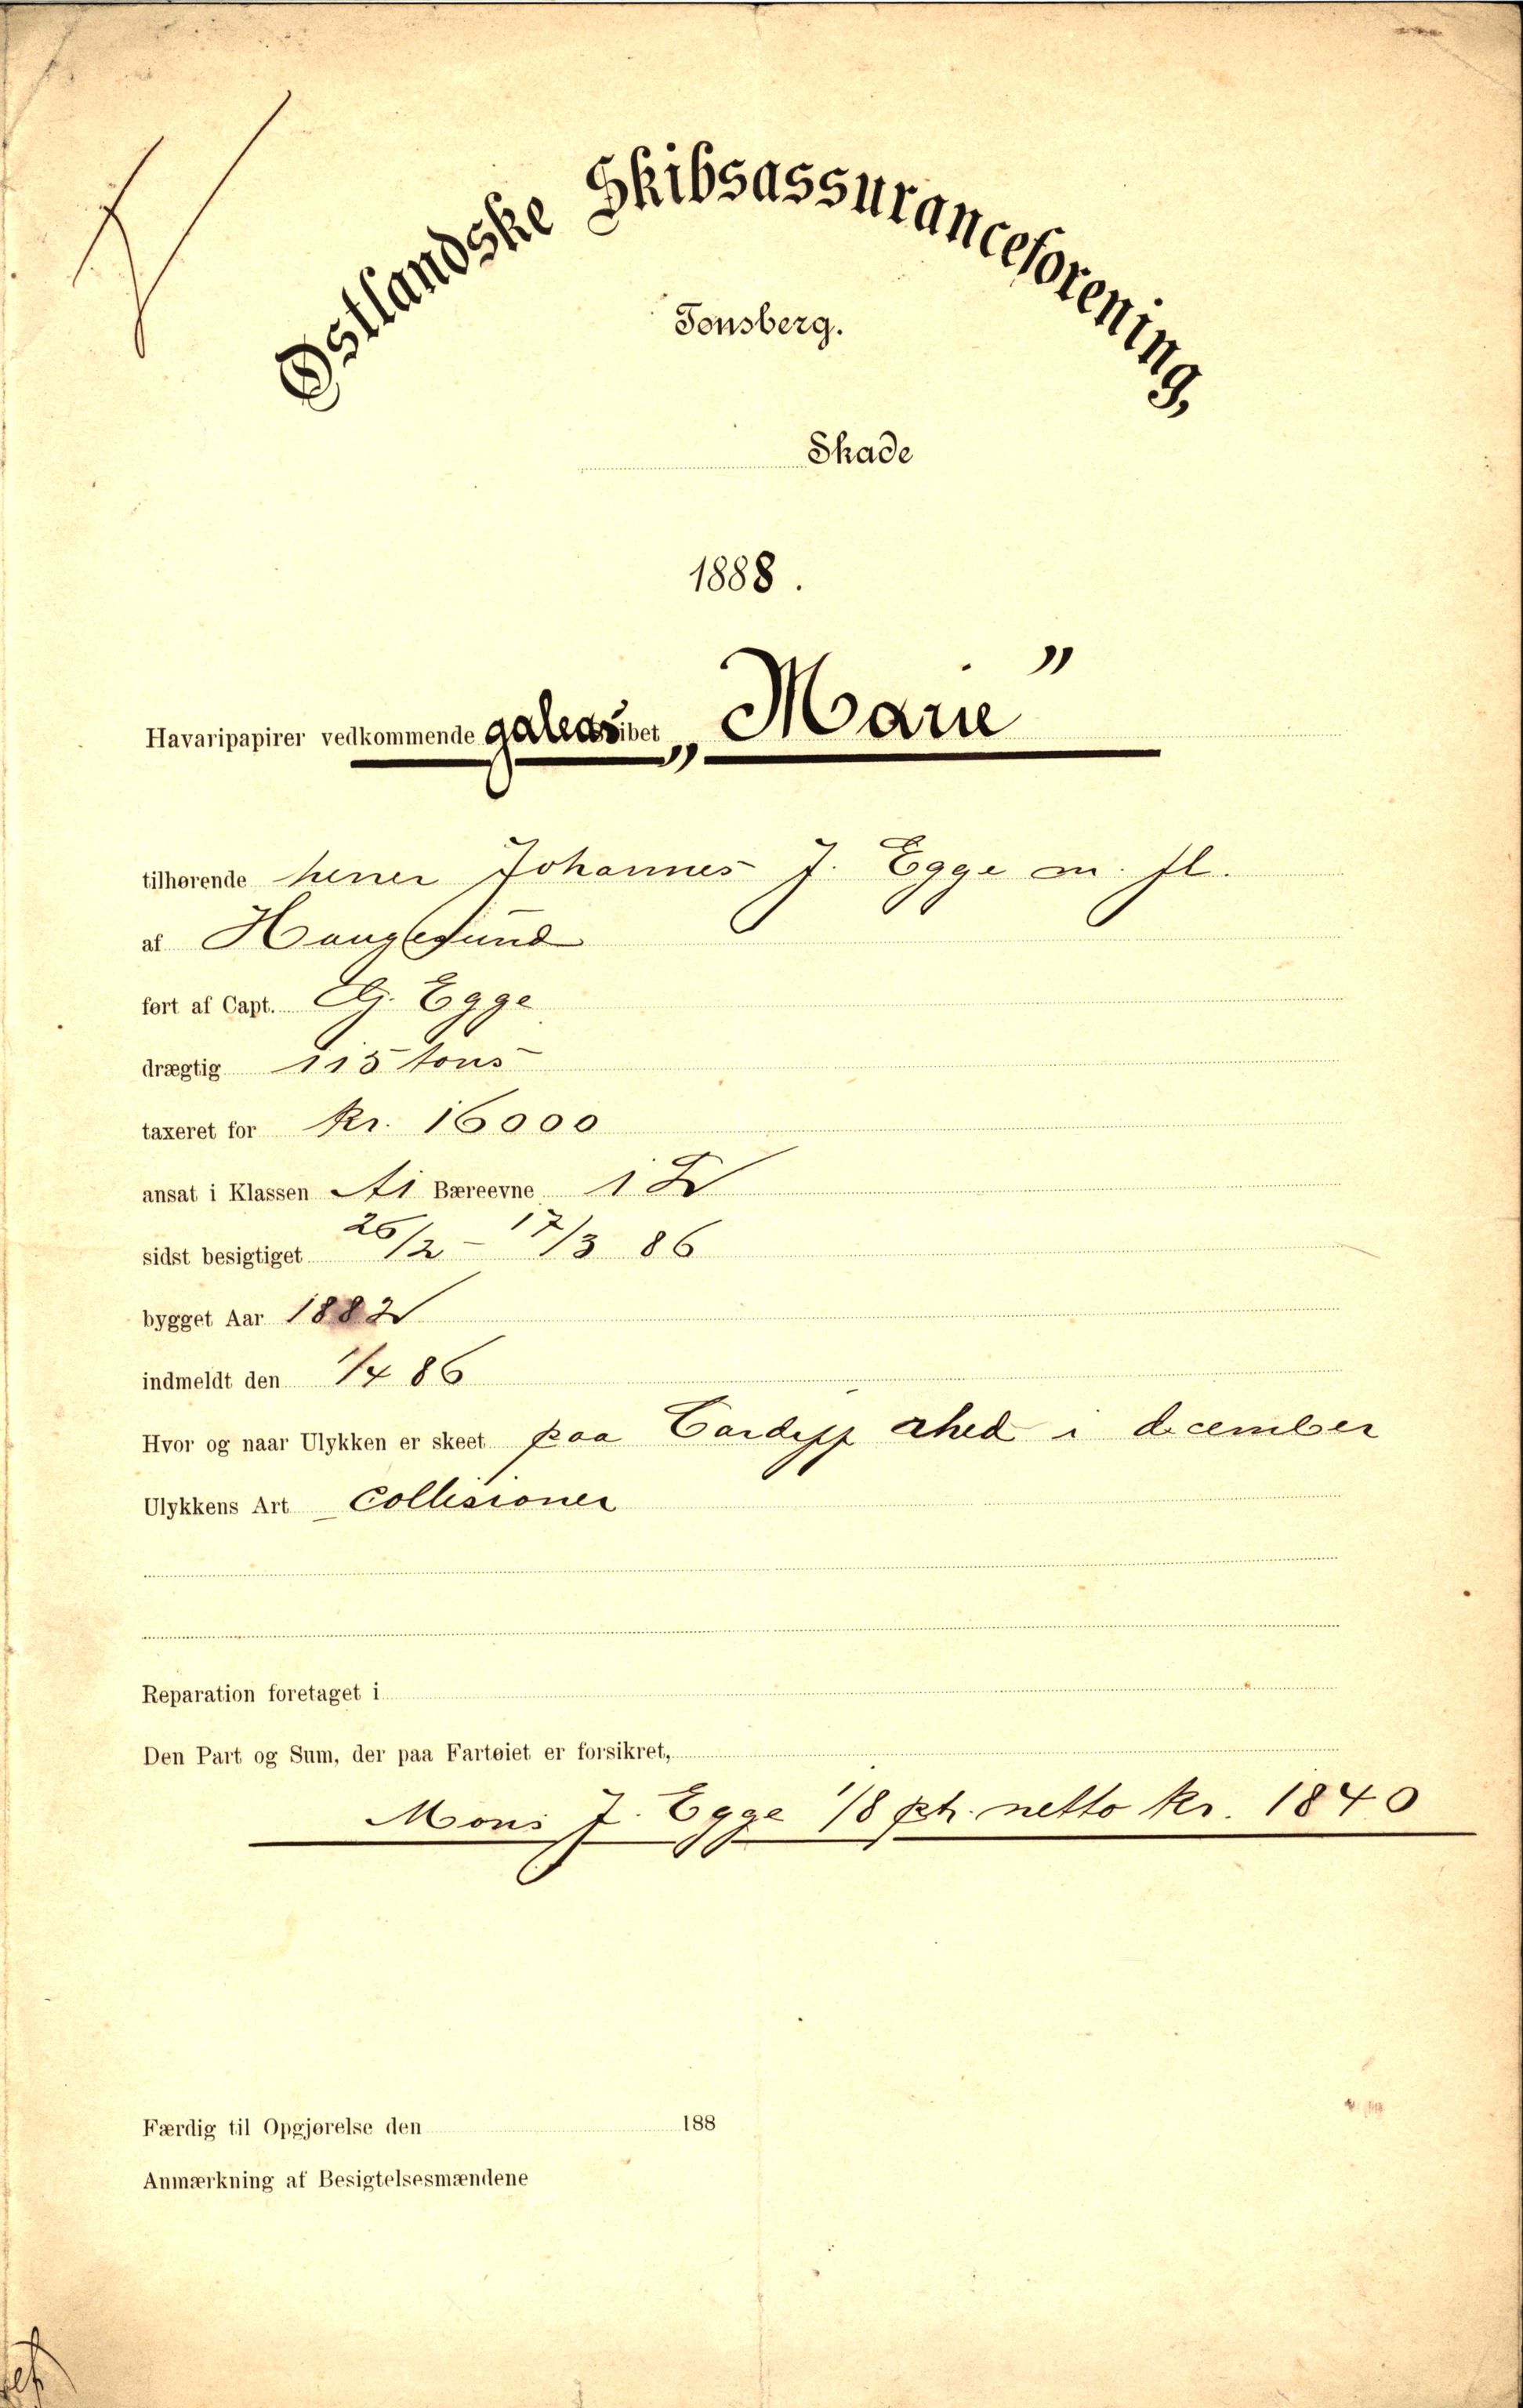 Østlandske Skibsassuranceforening,
Tønsberg.
Skade
1888.
Havaripapirer vedkommende galeasibet „Marie"
tilhørende herrer Johannes J. Egge m. fl.
af Haugesund
ført af Capt. Elj. Egge
drægtig 115 tons
taxeret for Kr. 16000
ansat i Klassen A1 Bæreevne
sidst besigtiget 26/2 - 17/3 86
bygget Aar 1882
indmeldt den 1/4 86
Hvor og naar Ulykken er skeet paa Cardiff rhed i december
Ulykkens Art Collisioner
Reparation foretaget i
Den Part og Sum, der paa Fartøiet er forsikret,
Mons J. Egge 1/8 pt. netto kr. 1840
Færdig til Opgjørelse den 188
Anmærkning af Besigtelsesmændene